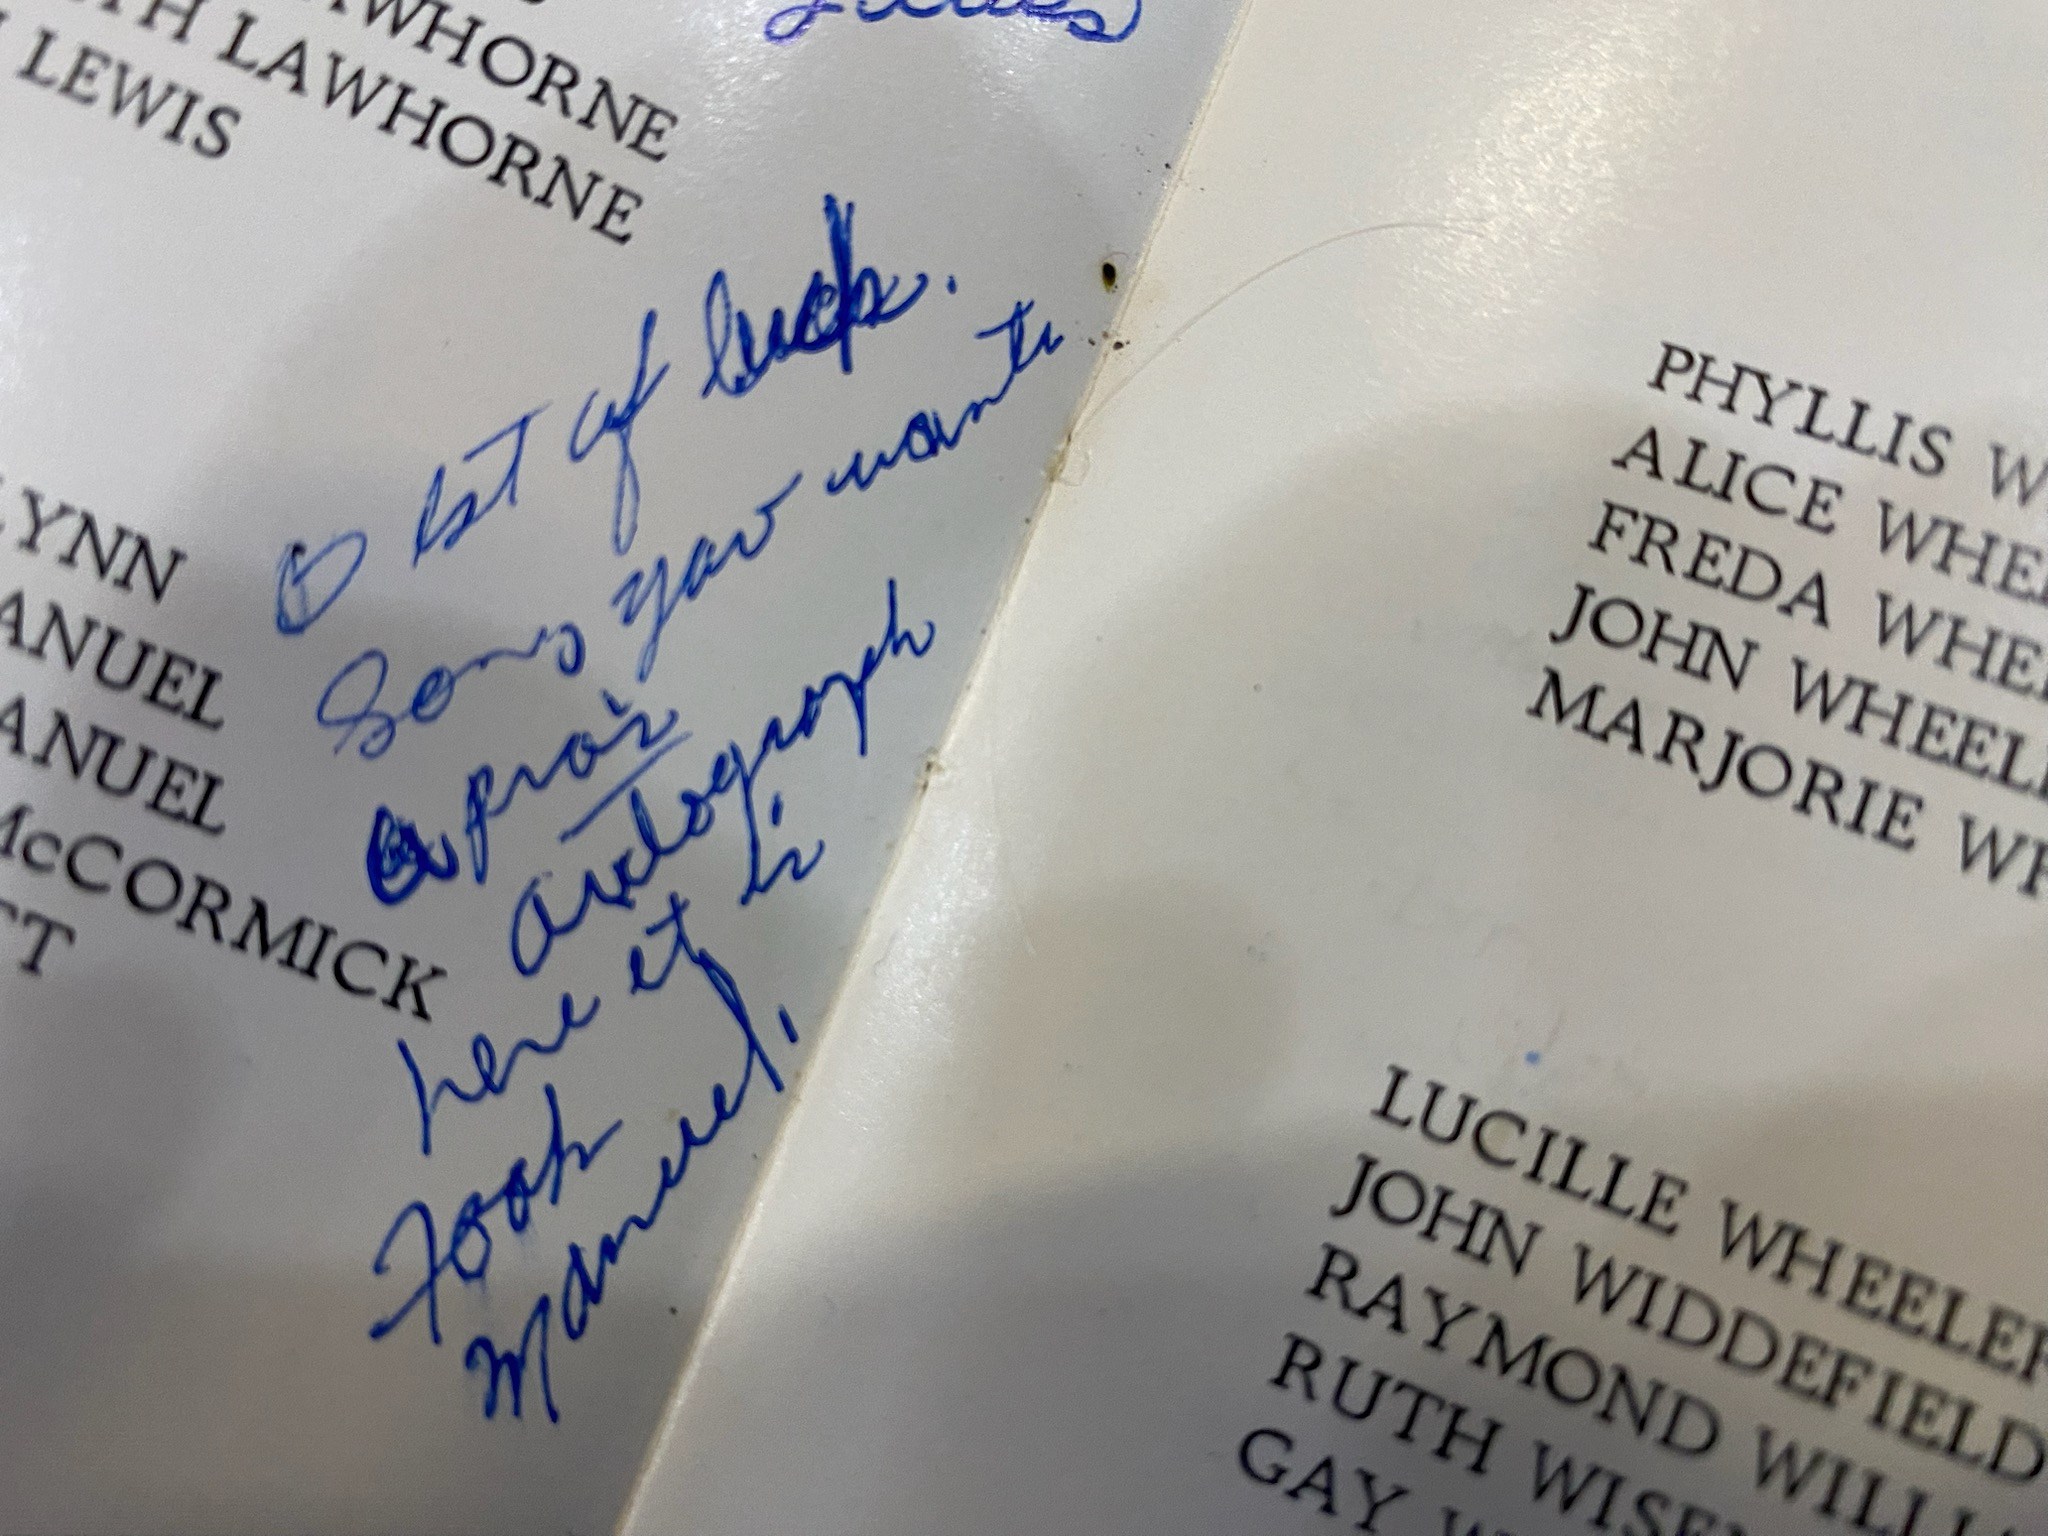 AWHORNE
TH LAWHORNE
LEWIS
LYNN
ANUEL
ANUEL
McCORMICK
TT
O Best of luck.
Song you want
a pro's
autograph
here it is
Fook
Manuel.
PHYLLIS W
ALICE WHEE
FREDA WHEE
JOHN WHEEL
MARJORIE WH
LUCILLE WHEELER
JOHN WIDDEFIELD
RAYMOND WILLI
RUTH WISE
GAY W